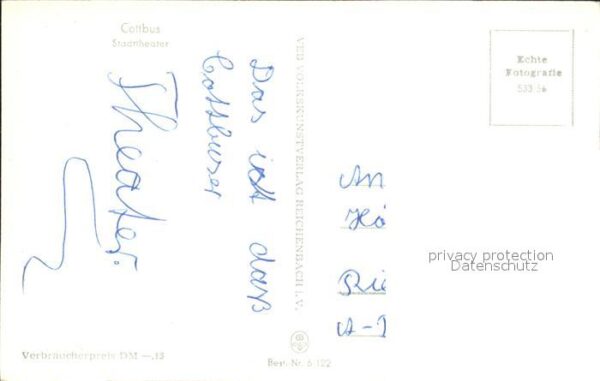 Cottbus
Stadttheater
Das ist daß
Cottbuser
Theater.
VEB VOLKSKUNSTVERLAG REICHENBACH i. V.
Echte
Fotografie
An
Hö
Rie
A-1
privacy protection
Datenschutz
Verbraucherpreis DM —.15
Best. Nr. 6 122